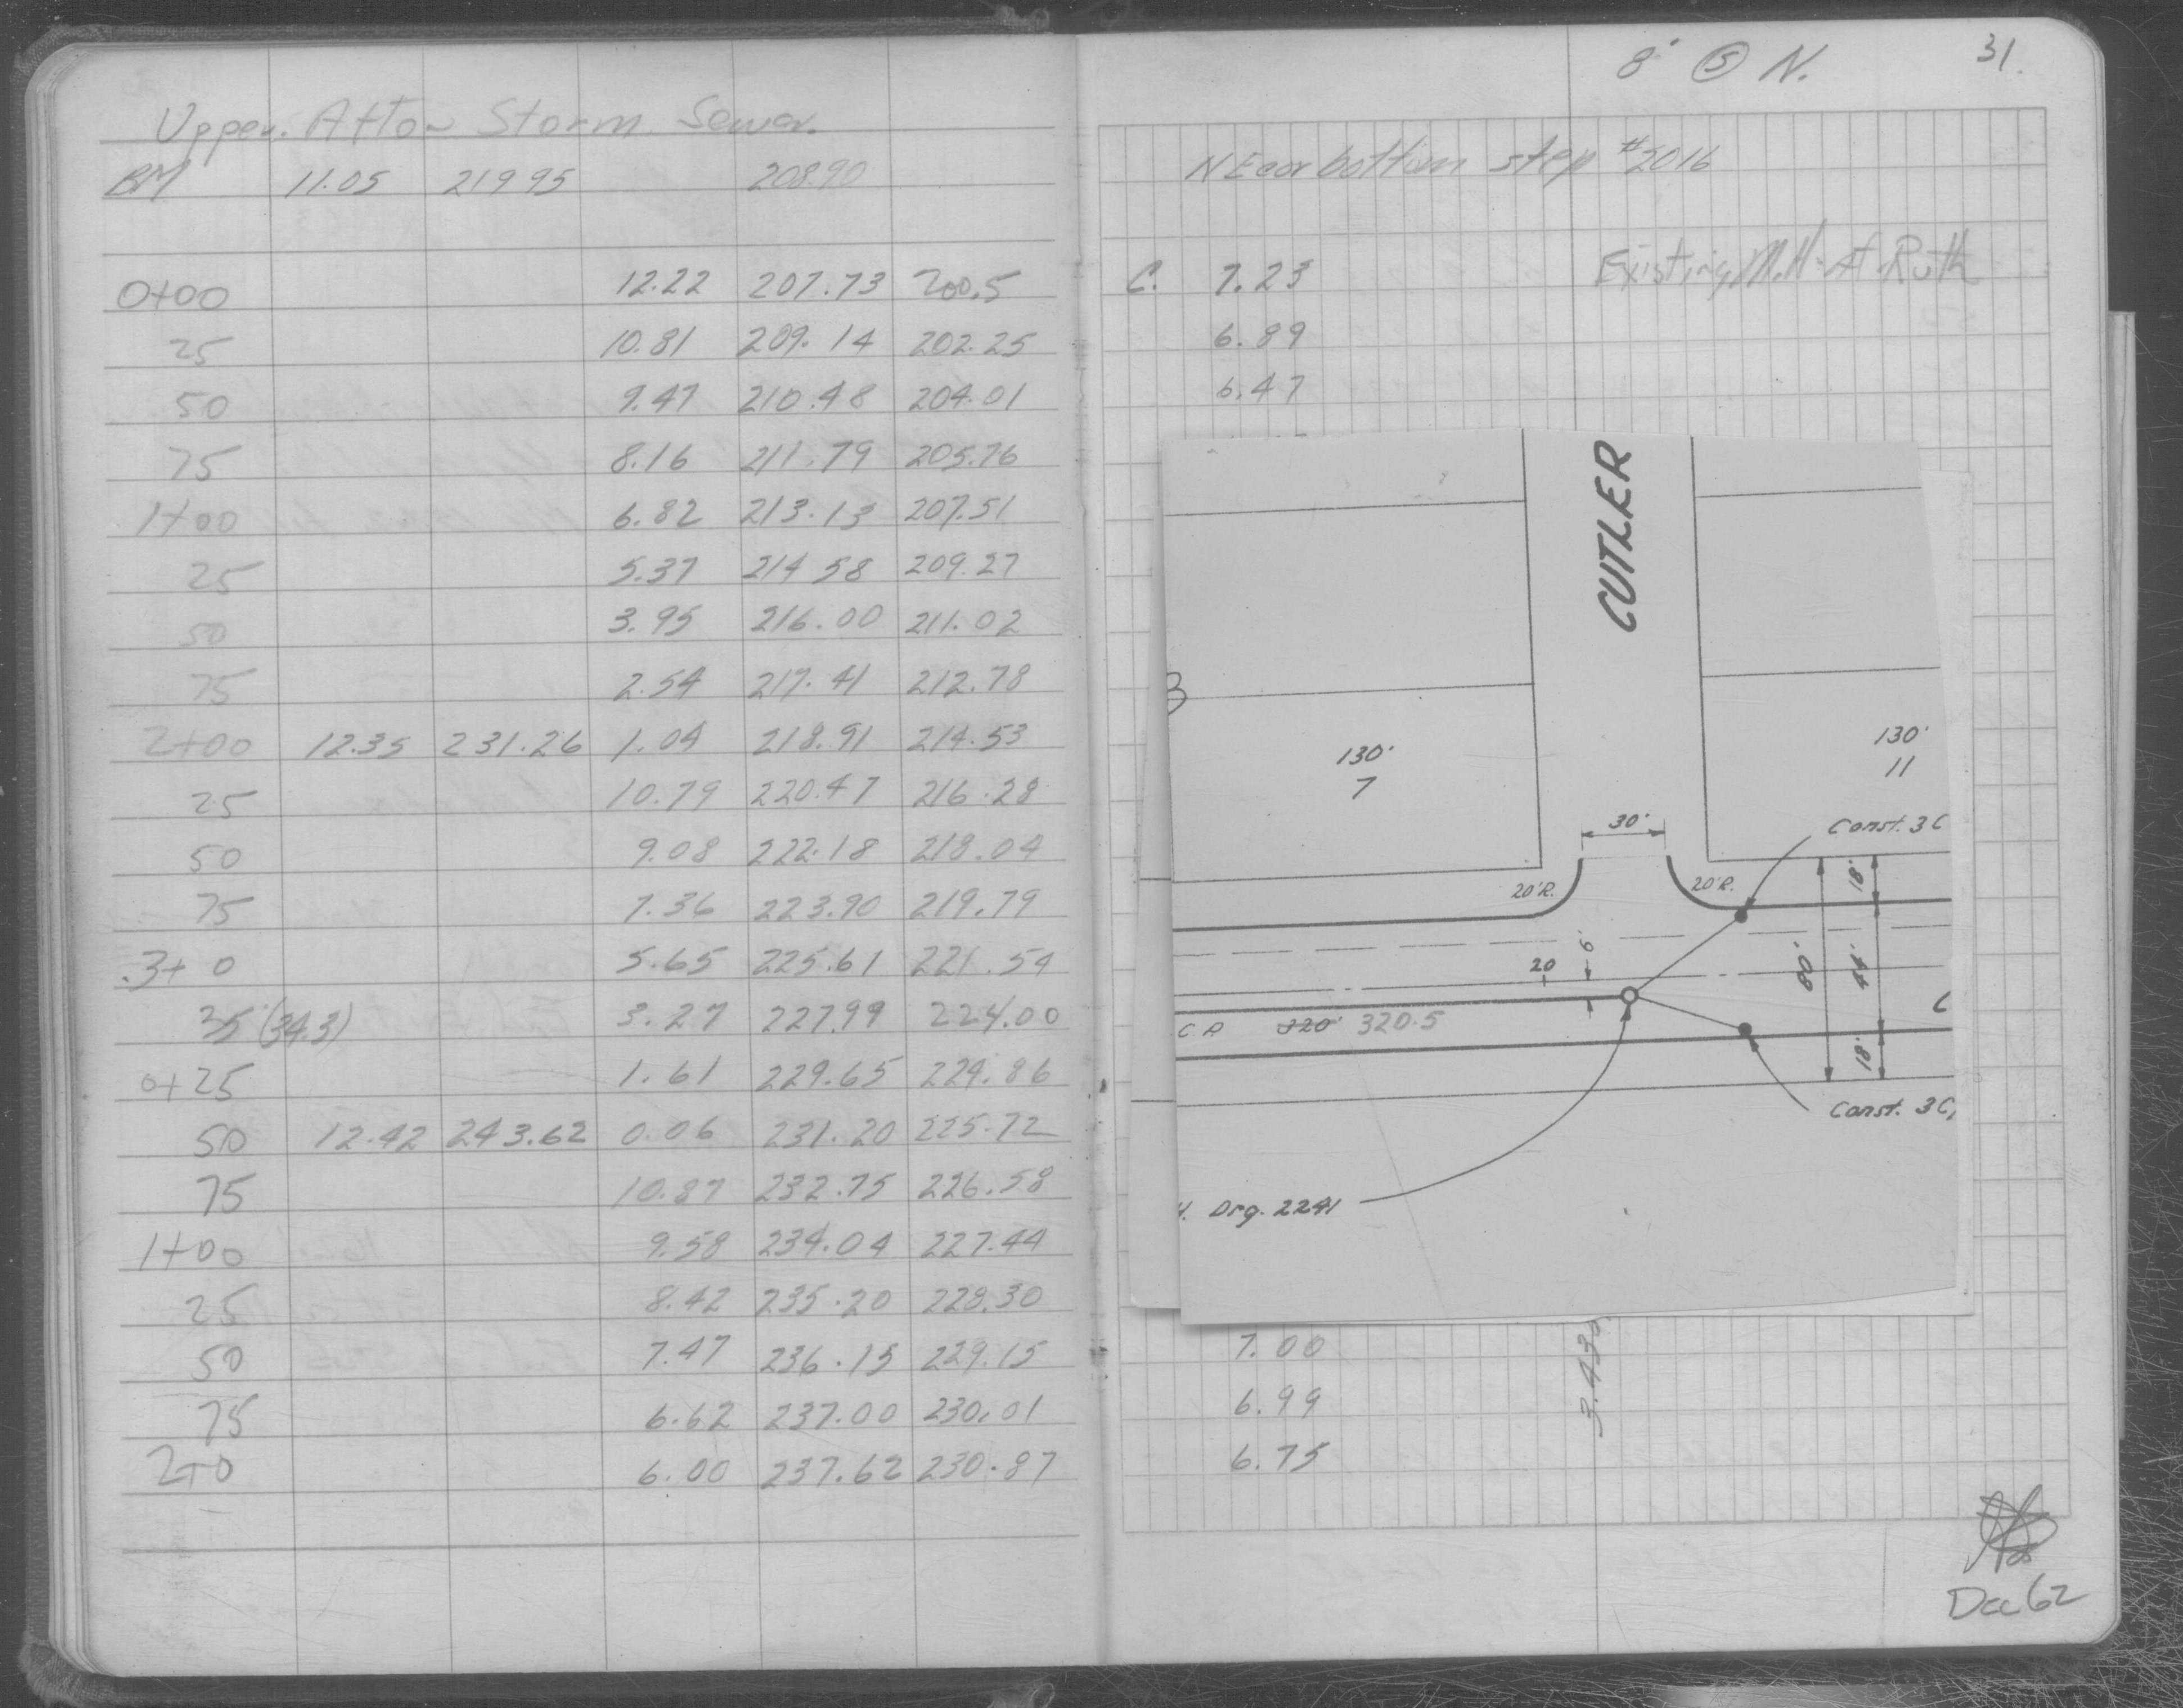 Upper. Afton Storm Sewer.
BM 11.05 219 95 208.90
0+00 12.22 207.73 200.5
25 10.81 209.14 202.25
50 9.47 210.48 204.01
75 8.16 211.79 205.76
1+00 6.82 213.13 207.51
25 5.37 214 58 209.27
50 3.95 216.00 211.02
75 2.54 217.41 212.78
2+00 12.35 231.26 1.04 218.91 214.53
25 10.79 220.47 216.28
50 9.08 222.18 218.04
75 7.36 223.90 219.79
3+0 5.65 225.61 221.54
35 (34.3) 3.27 227.99 224.00
0+25 1.61 229.65 224.86
50 12.42 243.62 0.06 231.20 225.72
75 10.87 232.75 226.58
1+00 9.58 234.04 227.44
25 8.42 235.20 228.30
50 7.47 236.15 229.15
75 6.62 237.00 230.01
2+0 6.00 237.62 230.87
8' Ⓢ N.
31.
NE cor bottom step #2016
C. 7.23 Existing M.H. At Ruth
6.89
6.47
CUTLER
3
130'
7
130'
11
30'
Const. 3 C
20'R.
20'R.
18'
6'
20
80'
44'
C P 320' 320.5
18'
Const. 3 C,
Drg. 2241
7.00
6.99
6.75
3.43
Dec 62